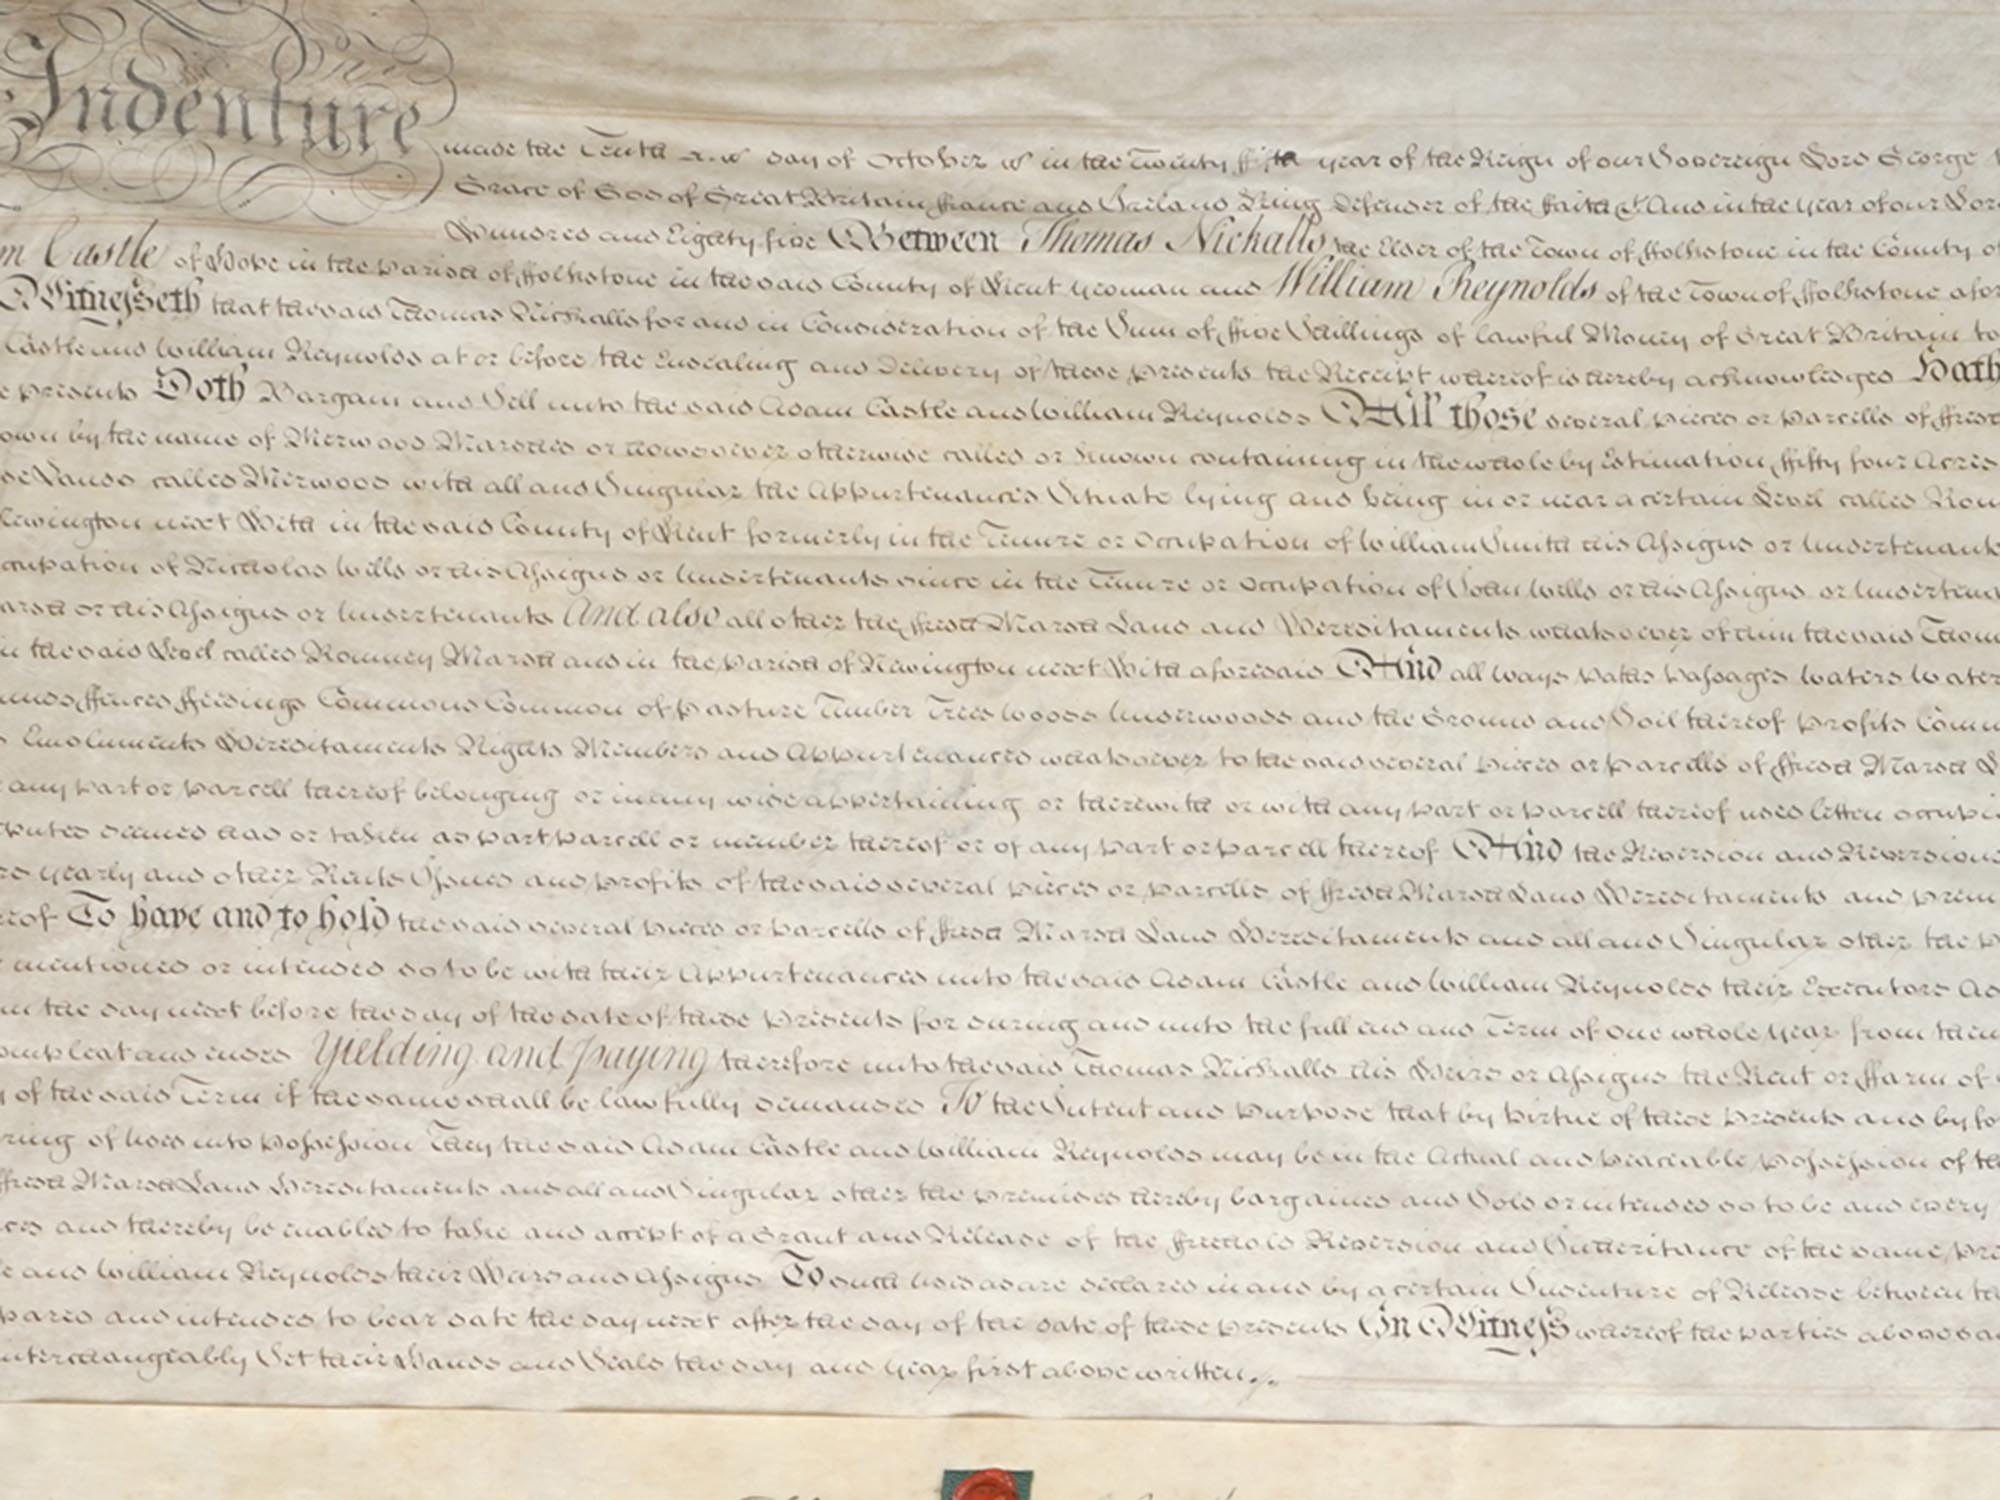 Indenture
made the Tenth day of October in the Twenty fifth year of the Reign of our Sovereign Lord George
Grace of God of Great Britain ffrance and Ireland King Defender of the ffaith &c And in the year of our Lord
Hundred and Eighty five Between Thomas Nickalls the Elder of the Town of ffolkstone in the County of
m Castle of Hope in the parish of ffolkstone in the said County of Kent yeoman and William Reynolds of the Town of ffolkstone afor
Witnesseth that the said Thomas Nickalls for and in Consideration of the Sum of ffive Shillings of lawful Money of Great Britain to
Castle and William Reynolds at or before the Ensealing and Delivery of these presents the Receipt whereof is hereby acknowledged Hath
e presents Doth Bargain and Sell unto the said Adam Castle and William Reynolds All those several pieces or parcells of ffresh
own by the name of Merwood Marshes or howsoever otherwise called or known containing in the whole by Estimation ffifty four Acres
se Lands called Merwood with all and Singular the Appurtenances Situate lying and being in or near a certain Level called Rom
Newington next Hith in the said County of Kent formerly in the Tenure or Occupation of William Smith his Assigns or Undertenants
ccupation of Nicholas Wills or his Assigns or Undertenants since in the Tenure or Occupation of John Wills or his Assigns or Undertena
arsh or his Assigns or Undertenants And also all other the ffresh Marsh Land and Hereditaments whatsoever of him the said Thom
in the said Level called Romney Marsh and in the parish of Newington next Hith aforesaid And all ways paths passages waters water
ounds ffences ffeedings Commons Common of pasture Timber Trees woods Underwoods and the Ground and Soil thereof profits Comm
s Emoluments Hereditaments Rights Members and Appurtenances whatsoever to the said several pieces or parcells of ffresh Marsh L
any part or parcell thereof belonging or in any wise appertaining or therewith or with any part or parcell thereof used letten occupi
eputed deemed had or taken as part parcell or member thereof or of any part or parcell thereof And the Reversion and Reversions
rs yearly and other Rents Issues and profits of the said several pieces or parcells of ffresh Marsh Land Hereditaments and prem
reof To have and to hold the said several pieces or parcells of ffresh Marsh Land Hereditaments and all and Singular other the p
mentioned or intended so to be with their Appurtenances unto the said Adam Castle and William Reynolds their Executors Ad
m the day next before the day of the date of these presents for during and unto the full end and Term of one whole year from then
ompleat and ended Yielding and paying therefore unto the said Thomas Nickalls his Heirs or Assigns the Rent or ffarm of
y of the said Term if the same shall be lawfully demanded To the Intent and purpose that by virtue of these presents and by fo
rring of Uses into possession They the said Adam Castle and William Reynolds may be in the Actual and peaceable possession of th
ffresh Marsh Land Hereditaments and all and Singular other the premises hereby bargained and Sold or intended so to be and every
ces and thereby be enabled to take and accept of a Grant and Release of the ffreehold Reversion and Inheritance of the same pre
e and William Reynolds their Heirs and Assigns To such Uses as are declared in and by a certain Indenture of Release between th
pared and intended to bear date the day next after the day of the date of these presents In Witness whereof the parties abovesa
nterchangeably Set their Hands and Seals the day and year first above written